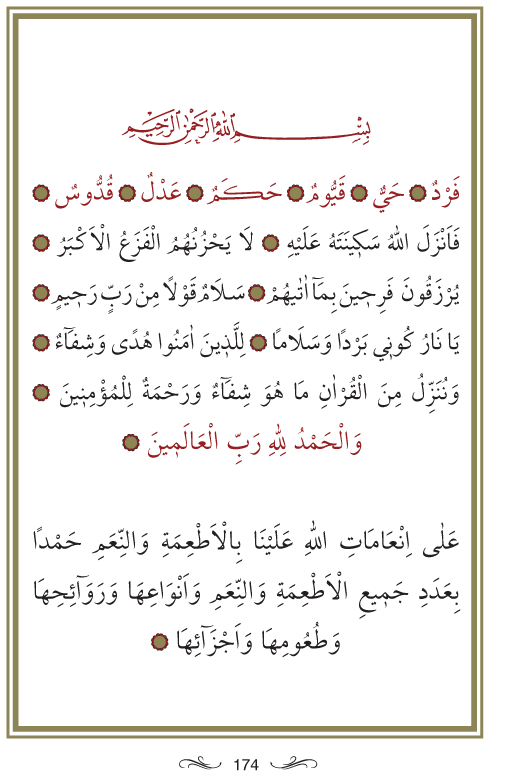 بِسْمِ اللّٰهِ الرَّحْمٰنِ الرَّحِيمِ
فَرْدٌ ۞ حَيٌّ ۞ قَيُّومٌ ۞ حَكَمٌ ۞ عَدْلٌ ۞ قُدُّوسٌ ۞
فَاَنْزَلَ اللّٰهُ سَكٖينَتَهُ عَلَيْهِ ۞ لَا يَحْزُنُهُمُ الْفَزَعُ الْاَكْبَرُ ۞
يُرْزَقُونَ فَرِحٖينَ بِمَٓا اٰتٰيهُمْ ۞ سَلَامٌ قَوْلًا مِنْ رَبٍّ رَحٖيمٍ ۞
يَا نَارُ كُونٖي بَرْدًا وَسَلَامًا ۞ لِلَّذٖينَ اٰمَنُوا هُدًى وَشِفَٓاءٌ ۞
وَنُنَزِّلُ مِنَ الْقُرْاٰنِ مَا هُوَ شِفَٓاءٌ وَرَحْمَةٌ لِلْمُؤْمِنٖينَ ۞
وَالْحَمْدُ لِلّٰهِ رَبِّ الْعَالَمٖينَ ۞
عَلٰى اِنْعَامَاتِ اللّٰهِ عَلَيْنَا بِالْاَطْعِمَةِ وَالنِّعَمِ حَمْدًا
بِعَدَدِ جَمٖيعِ الْاَطْعِمَةِ وَالنِّعَمِ وَاَنْوَاعِهَا وَرَوَٓائِحِهَا
وَطُعُومِهَا وَاَجْزَٓائِهَا ۞
174